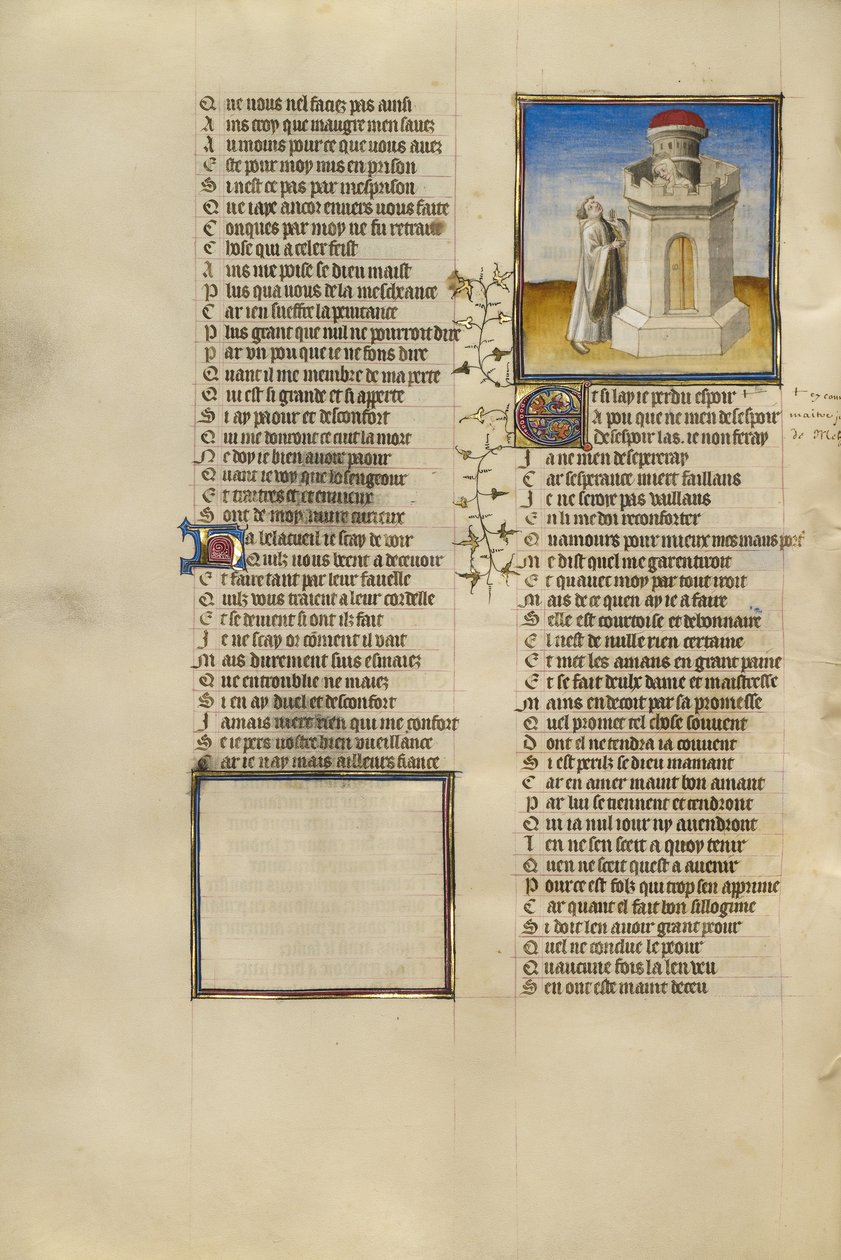 Que vous nel faciez pas ainsi
Ains croy que maugre men sauez
Au moins pour ce que vous auez
Este pour moy mis en prison
Si nest ce pas par mesprison
Que iaye ancor enuers vous faite
Conques par moy ne fu retraite
Chose qui a celer feist
Ains me poise se dieu maist
Plus qua vous de la mescheance
Car ien sueffre la penitance
Plus grant que nul ne pourroit dire
Par vn pou que ie ne fons dire
Quant il me membre de ma perte
Qui est si grande et si apperte
Si ay paour et desconfort
Qui me donront ce cuit la mort
Ne doy ie bien auoir paour
Quant ie voy que losengeour
Et traitres et enuieux
Sont de moy nuire curieux
Ha belacueil ie scay de voir
Quilz vous beent a deceuoir
Et faire tant par leur fauelle
Quilz vous traient a leur cordelle
Et se deuient si ont ilz fait
Je ne scay or cōment il vait
Mais durement suis esmaiez
Que entroublie ne maiez
Si en ay duel et desconfort
Jamais niert rien qui me confort
Se ie pers vostre bien vueillance
Car ie nay mais ailleurs fiance
Et si lay ie perdu espoir +
A pou que ne men desespoir
Desespoir las. ie non feray
Ja ne men desespereray
Car sesperance miert faillans
Je ne seroie pas vaillans
En li me doi reconforter
Quamours pour mieux mes maus port
Me dist quel me garentiroit
Et quauec moy par tout iroit
Mais de ce quen ay ie a faire
Selle est courtoise et debonnaire
El nest de nulle rien certaine
Et met les amans en grant paine
Et se fait deulx dame et maistresse
Mains en decoit par sa promesse
Quel promet tel chose souuent
Dont el ne tendra ia couuent
Si est perilz se dieu mamant
Car en amer maint bon amant
Par lui se tiennent et tendront
Qui ia nul iour ny auendront
Len ne sen sceit a quoy tenir
Quen ne sceit quest a auenir
Pour ce est folz qui trop sen apprime
Car quant el fait bon sillogime
Si doit len auoir grant peour
Quel ne conclue le peour
Quaucune fois la len veu
Sen ont este maint deceu
+ cy com
maitre j
de Me